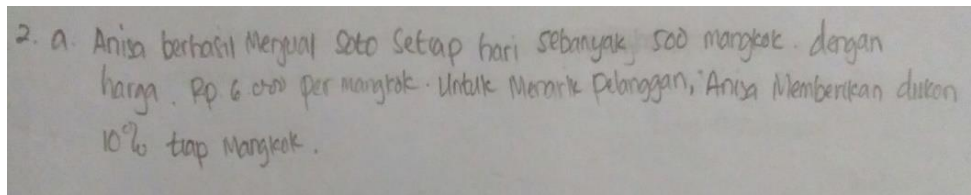 2. a. Anisa berhasil Menjual Soto Setiap hari sebanyak 500 mangkok. dengan
harga. Rp 6.000 per mangkok. Untuk Menarik Pelanggan, Anisa Memberikan diskon
10% tiap Mangkok.